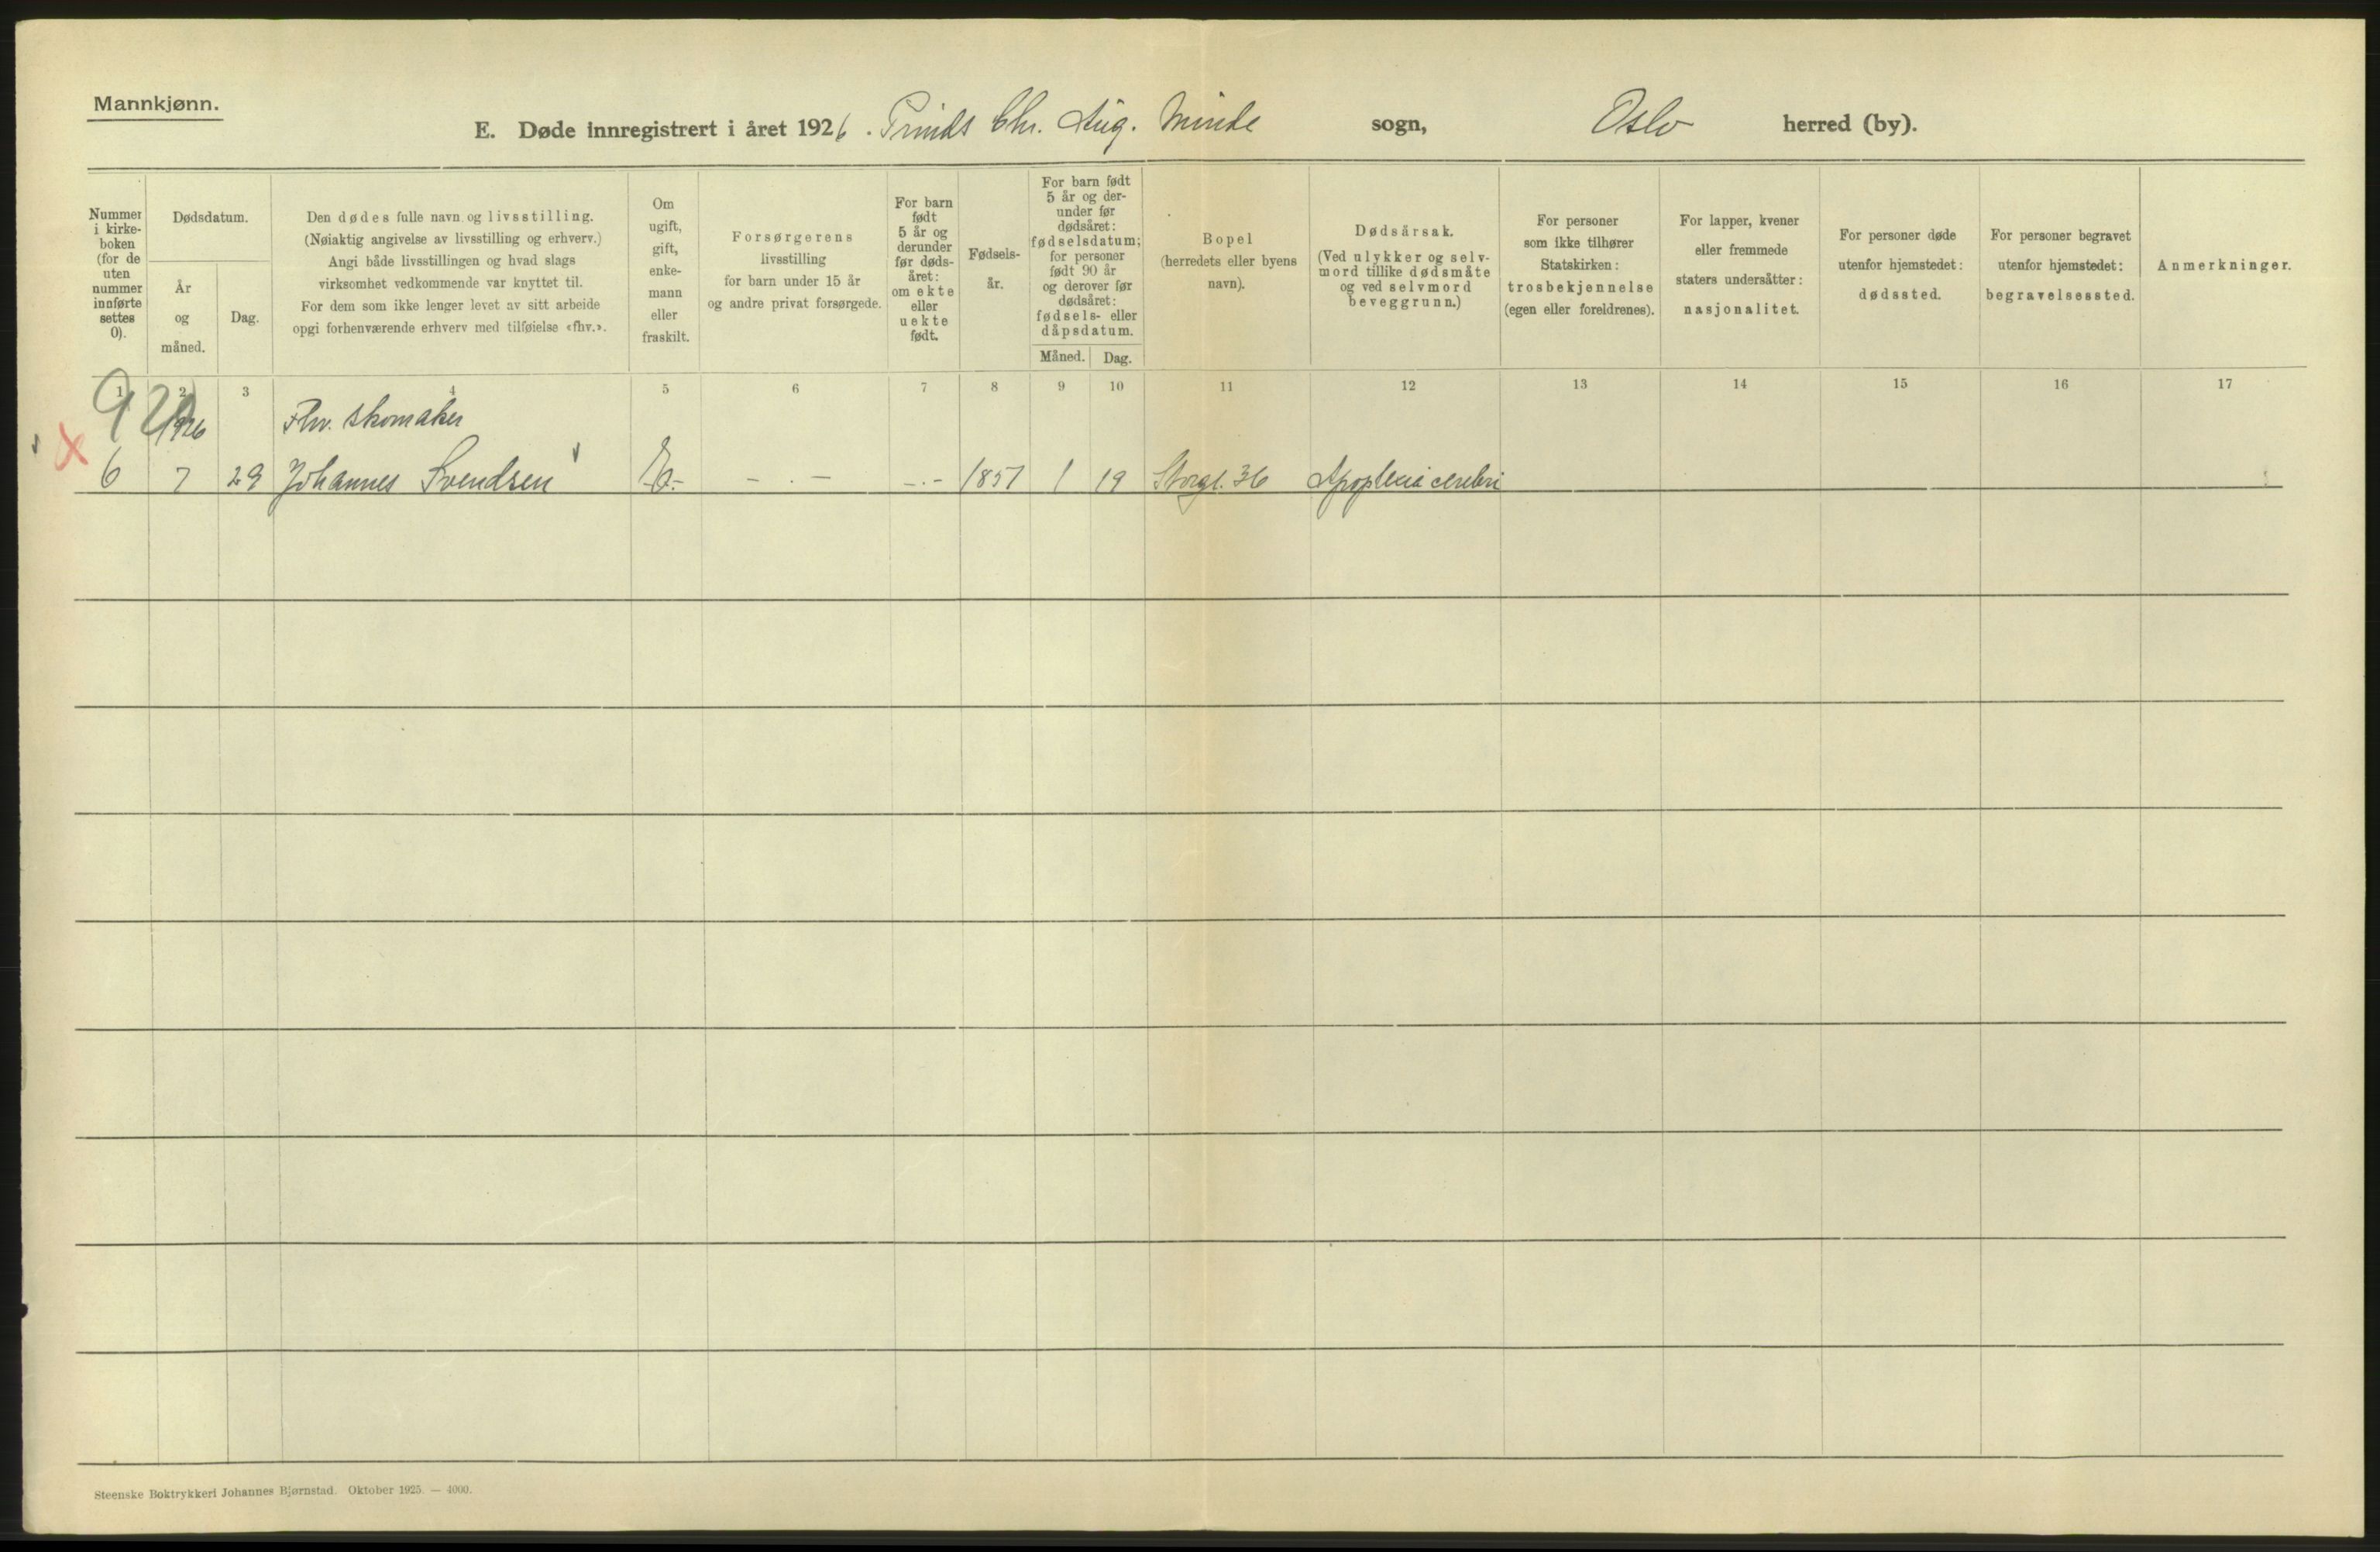 Mannkjønn.
E. Døde innregistrert i året 1926. Prinds Chr. Aug. Minde sogn, Oslo herred (by).
Nummer i kirke- boken (for de uten nummer innførte settes 0).
Dødsdatum.
År og måned.
Dag.
Den dødes fulle navn og livsstilling.
(Nøiaktig angivelse av livsstilling og erhverv.)
Angi både livsstillingen og hvad slags
virksomhet vedkommende var knyttet til.
For dem som ikke lenger levet av sitt arbeide
opgi forhenværende erhverv med tilføielse «fhv.».
Om ugift, gift, enke- mann eller fraskilt.
Forsørgerens
livsstilling
for barn under 15 år
og andre privat forsørgede.
For barn født 5 år og derunder før døds- året: om ekte eller uekte født.
Fødsels- år.
For barn født 5 år og der- under før dødsåret: fødselsdatum; for personer født 90 år og derover før dødsåret: fødsels- eller dåpsdatum.
Måned. Dag.
Bopel
(herredets eller byens
navn).
Dødsårsak.
(Ved ulykker og selv-
mord tillike dødsmåte
og ved selvmord
beveggrunn.)
For personer
som ikke tilhører
Statskirken:
trosbekjennelse
(egen eller foreldrenes).
For lapper, kvener
eller fremmede
staters undersåtter:
nasjonalitet.
For personer døde
utenfor hjemstedet:
dødssted.
For personer begravet
utenfor hjemstedet:
begravelsessted.
Anmerkninger.
1 2 3 4 5 6 7 8 9 10 11 12 13 14 15 16 17
1926 Fhv. skomaker
6 7 29 Johannes Svendsen E. - . - - . - 1857 1 19 Storgt. 36 Apoplexia cerebri
Steenske Boktrykkeri Johannes Bjørnstad. Oktober 1925. — 4000.